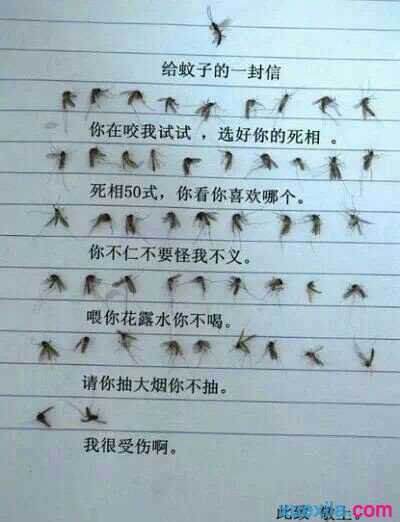 给蚊子的一封信
你在咬我试试 ，选好你的死相 。
死相50式，你看你喜欢哪个。
你不仁不要怪我不义。
喂你花露水你不喝。
请你抽大烟你不抽。
我很受伤啊。
此致 敬上。